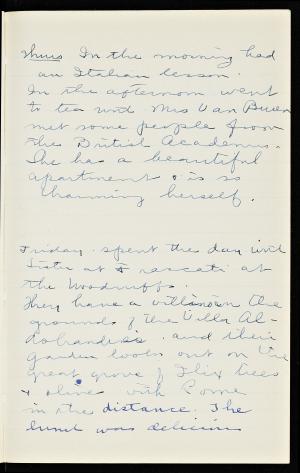 Thurs In the morning had
an Italian lesson.
In the afternoon went
to tea with Mrs Van Buren
met some people from
the British Academy.
She has a beautiful
apartment & is so
charming herself.
Friday. spent the day with
Sister at Frascati at
the Woodruffs.
They have a villino in the
grounds of the Villa Al-
dobrandini. and their
garden looks out on the
great grove of Ilix trees
& olives with Rome
in the distance. The
lunch was delicious